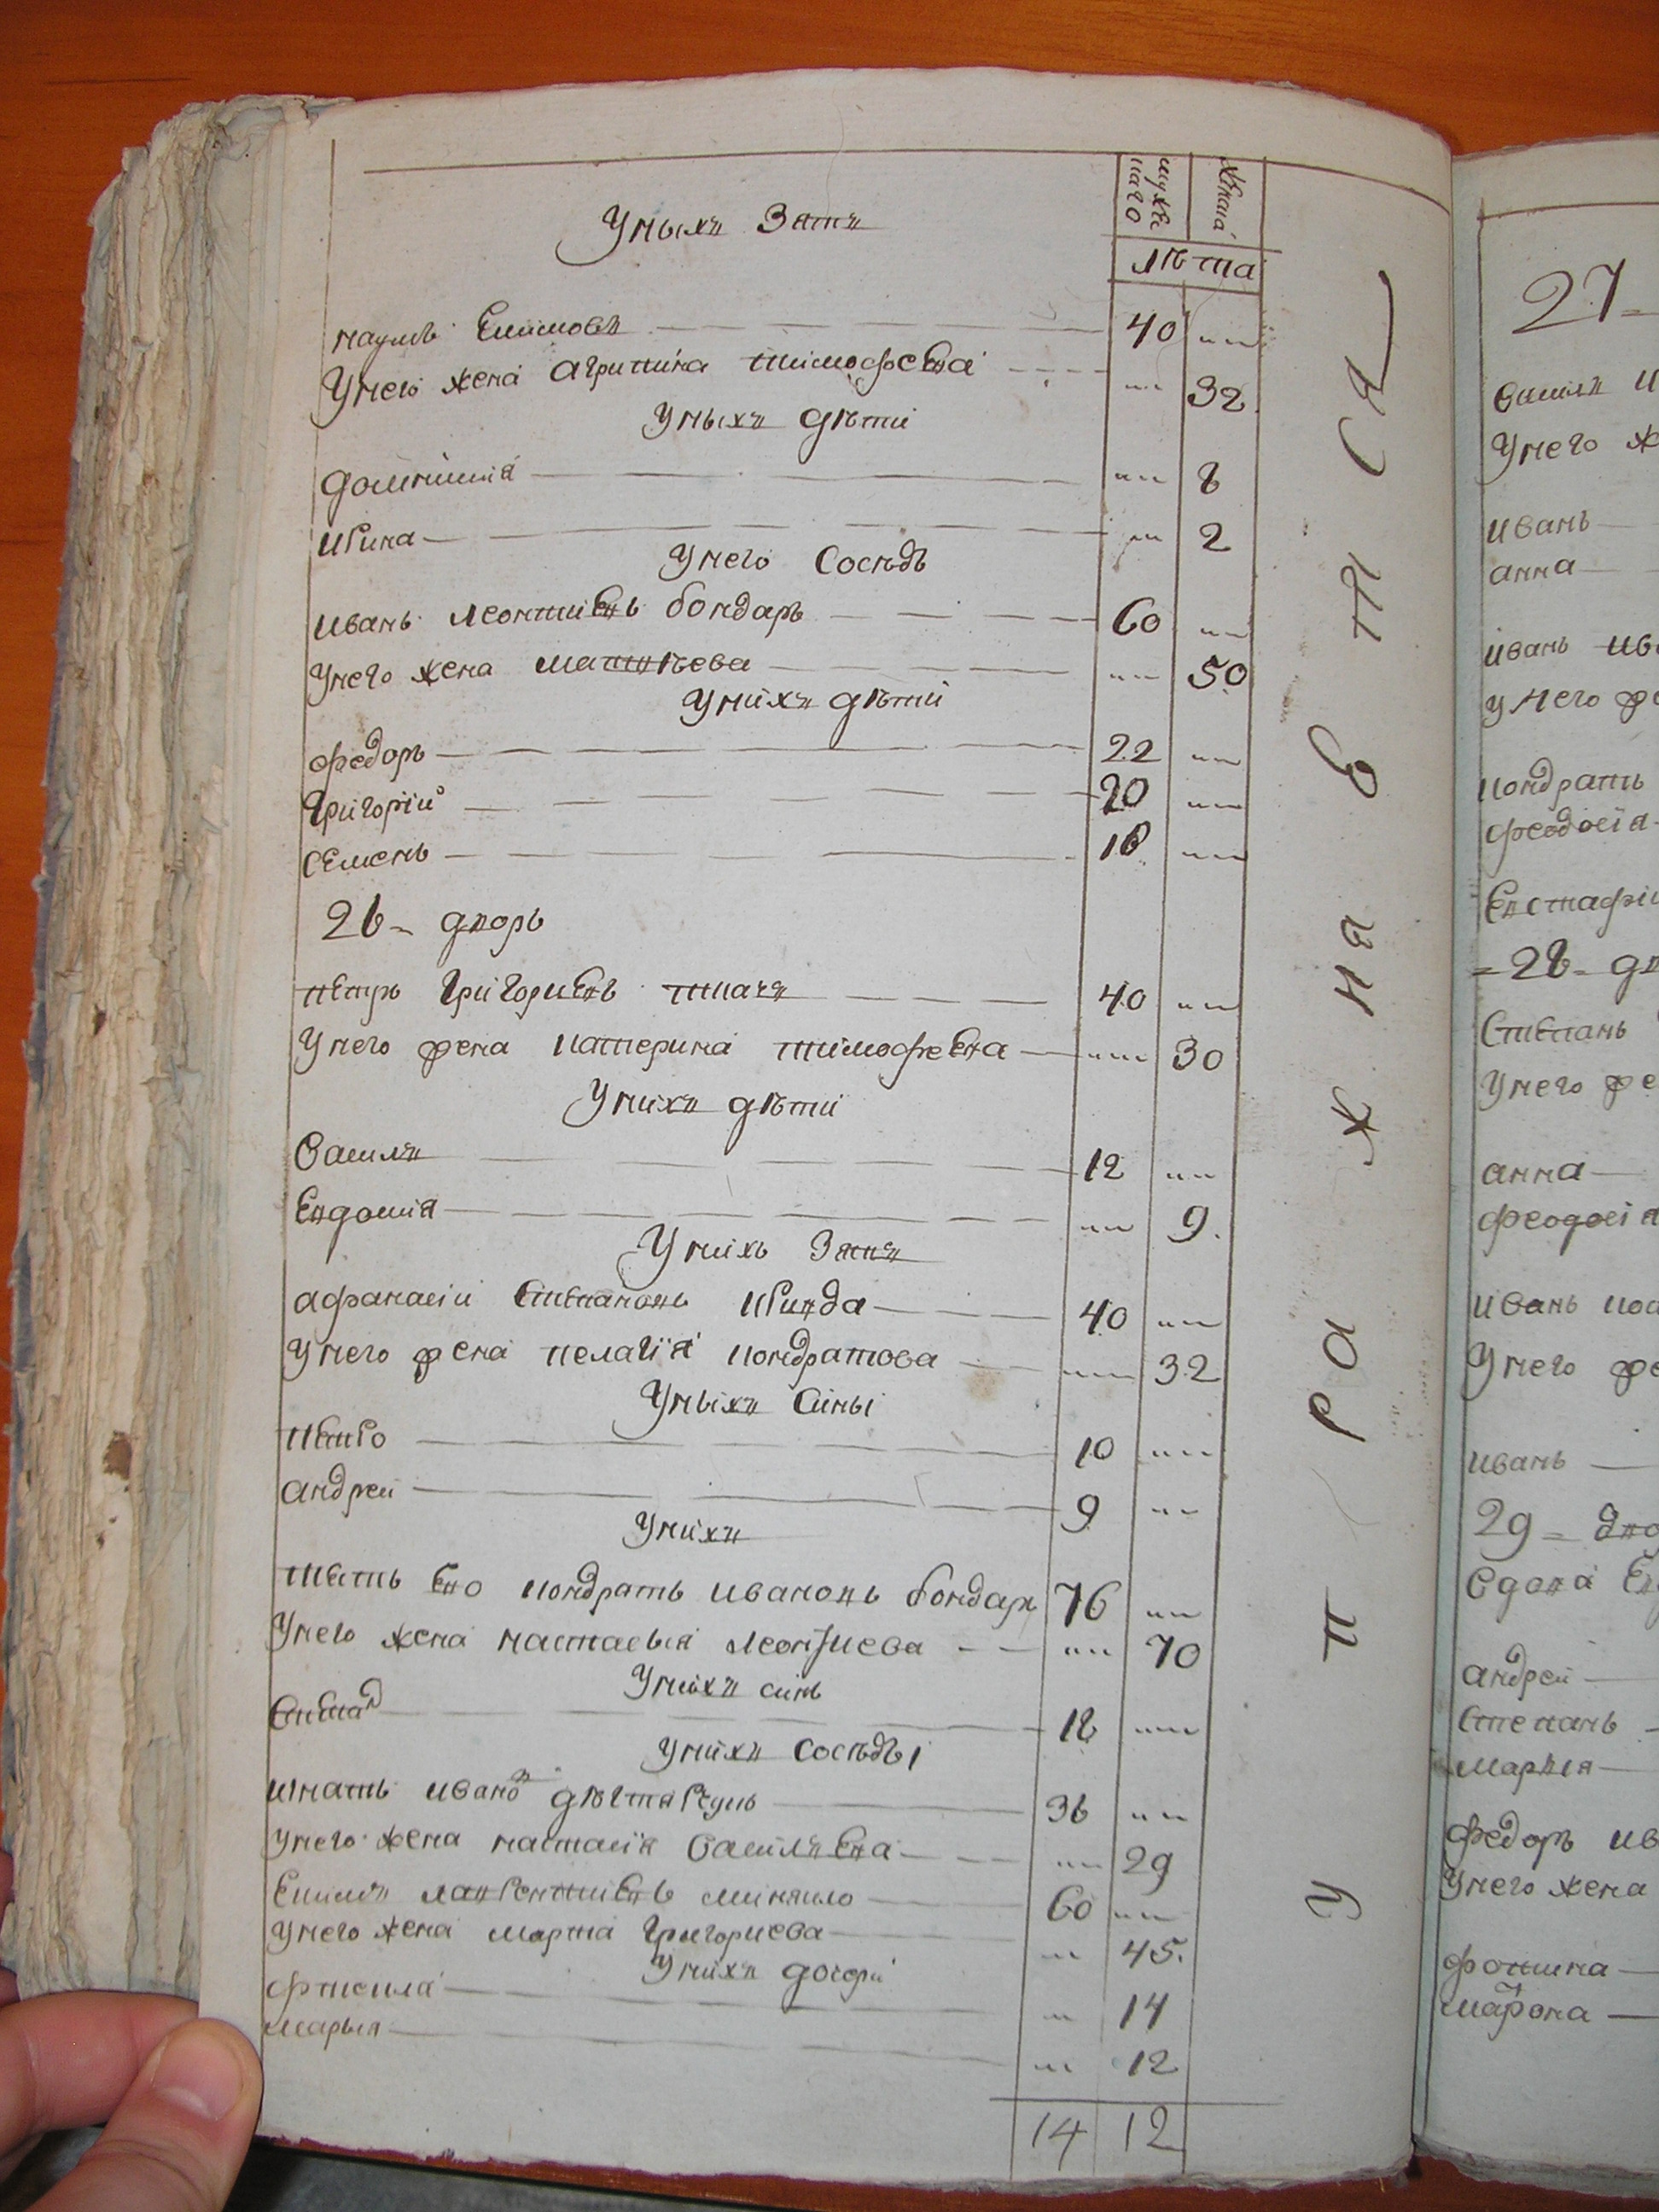 мужескаго женска
лѣта
Уныхъ Зять
наумъ Е 40
Унего жена агрипина тимофеева 32
Уныхъ дѣти
домникия 8
ирина 2
Унего Сосѣдъ
иванъ леонтиевъ бондаръ 60
Унего жена матвѣева 50
Унихъ дѣти
федоръ 22
Григорій 20
Семенъ 16
26 дворъ
петръ Григориевъ ткачъ 40
Унего жена катерина тимофеева 30
Унихъ дѣти
Василъ 12
Евдокия 9
Унихъ Зять
афанасіи Степановъ 40
Унего жена пелагия кондратова 32
Уныхъ Сины
петро 10
андреи 9
Унихъ
тесть Его кондратъ ивановъ бондар 76
Унего жена настасья леонтиева 70
Унихъ синъ
18
Унихъ сосѣды
игнатъ ивано 36
Унего жена настасия Василъева 29
лаврентиевъ 60
Унего жена марта Григориева 45
Унихъ дочери
14
марья 12
14 12
У П Р А Ж Н Я Е Т С Я
27
Василъ и
Унего ж
иванъ
анна
иванъ ив
Унего же
кондратъ
феодосіа
Евстафіи
28 дв
Степанъ
Унего же
анна
феодосіа
иванъ
Унего же
иванъ
29
Вдова Ев
андреи
Степанъ
марья
федоръ ив
Унего жена